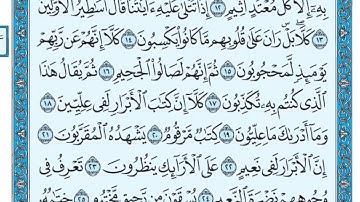 بِهِۦٓ إِلَّا كُلُّ مُعْتَدٍ أَثِيمٍ ١٢ إِذَا تُتْلَىٰ عَلَيْهِ ءَايَٰتُنَا قَالَ أَسَٰطِيرُ ٱلْأَوَّلِينَ
١٣ كَلَّا ۖ بَلْ ۜ رَانَ عَلَىٰ قُلُوبِهِم مَّا كَانُوا۟ يَكْسِبُونَ ١٤ كَلَّآ إِنَّهُمْ عَن رَّبِّهِمْ
يَوْمَئِذٍ لَّمَحْجُوبُونَ ١٥ ثُمَّ إِنَّهُمْ لَصَالُوا۟ ٱلْجَحِيمِ ١٦ ثُمَّ يُقَالُ هَٰذَا
ٱلَّذِى كُنتُم بِهِۦ تُكَذِّبُونَ ١٧ كَلَّآ إِنَّ كِتَٰبَ ٱلْأَبْرَارِ لَفِى عِلِّيِّينَ ١٨
وَمَآ أَدْرَىٰكَ مَا عِلِّيُّونَ ١٩ كِتَٰبٌ مَّرْقُومٌ ٢٠ يَشْهَدُهُ ٱلْمُقَرَّبُونَ ٢١
إِنَّ ٱلْأَبْرَارَ لَفِى نَعِيمٍ ٢٢ عَلَى ٱلْأَرَآئِكِ يَنظُرُونَ ٢٣ تَعْرِفُ فِى
وُجُوهِهِمْ نَضْرَةَ ٱلنَّعِيمِ ٢٤ يُسْقَوْنَ مِن رَّحِيقٍ مَّخْتُومٍ ٢٥ خِتَٰمُهُۥ